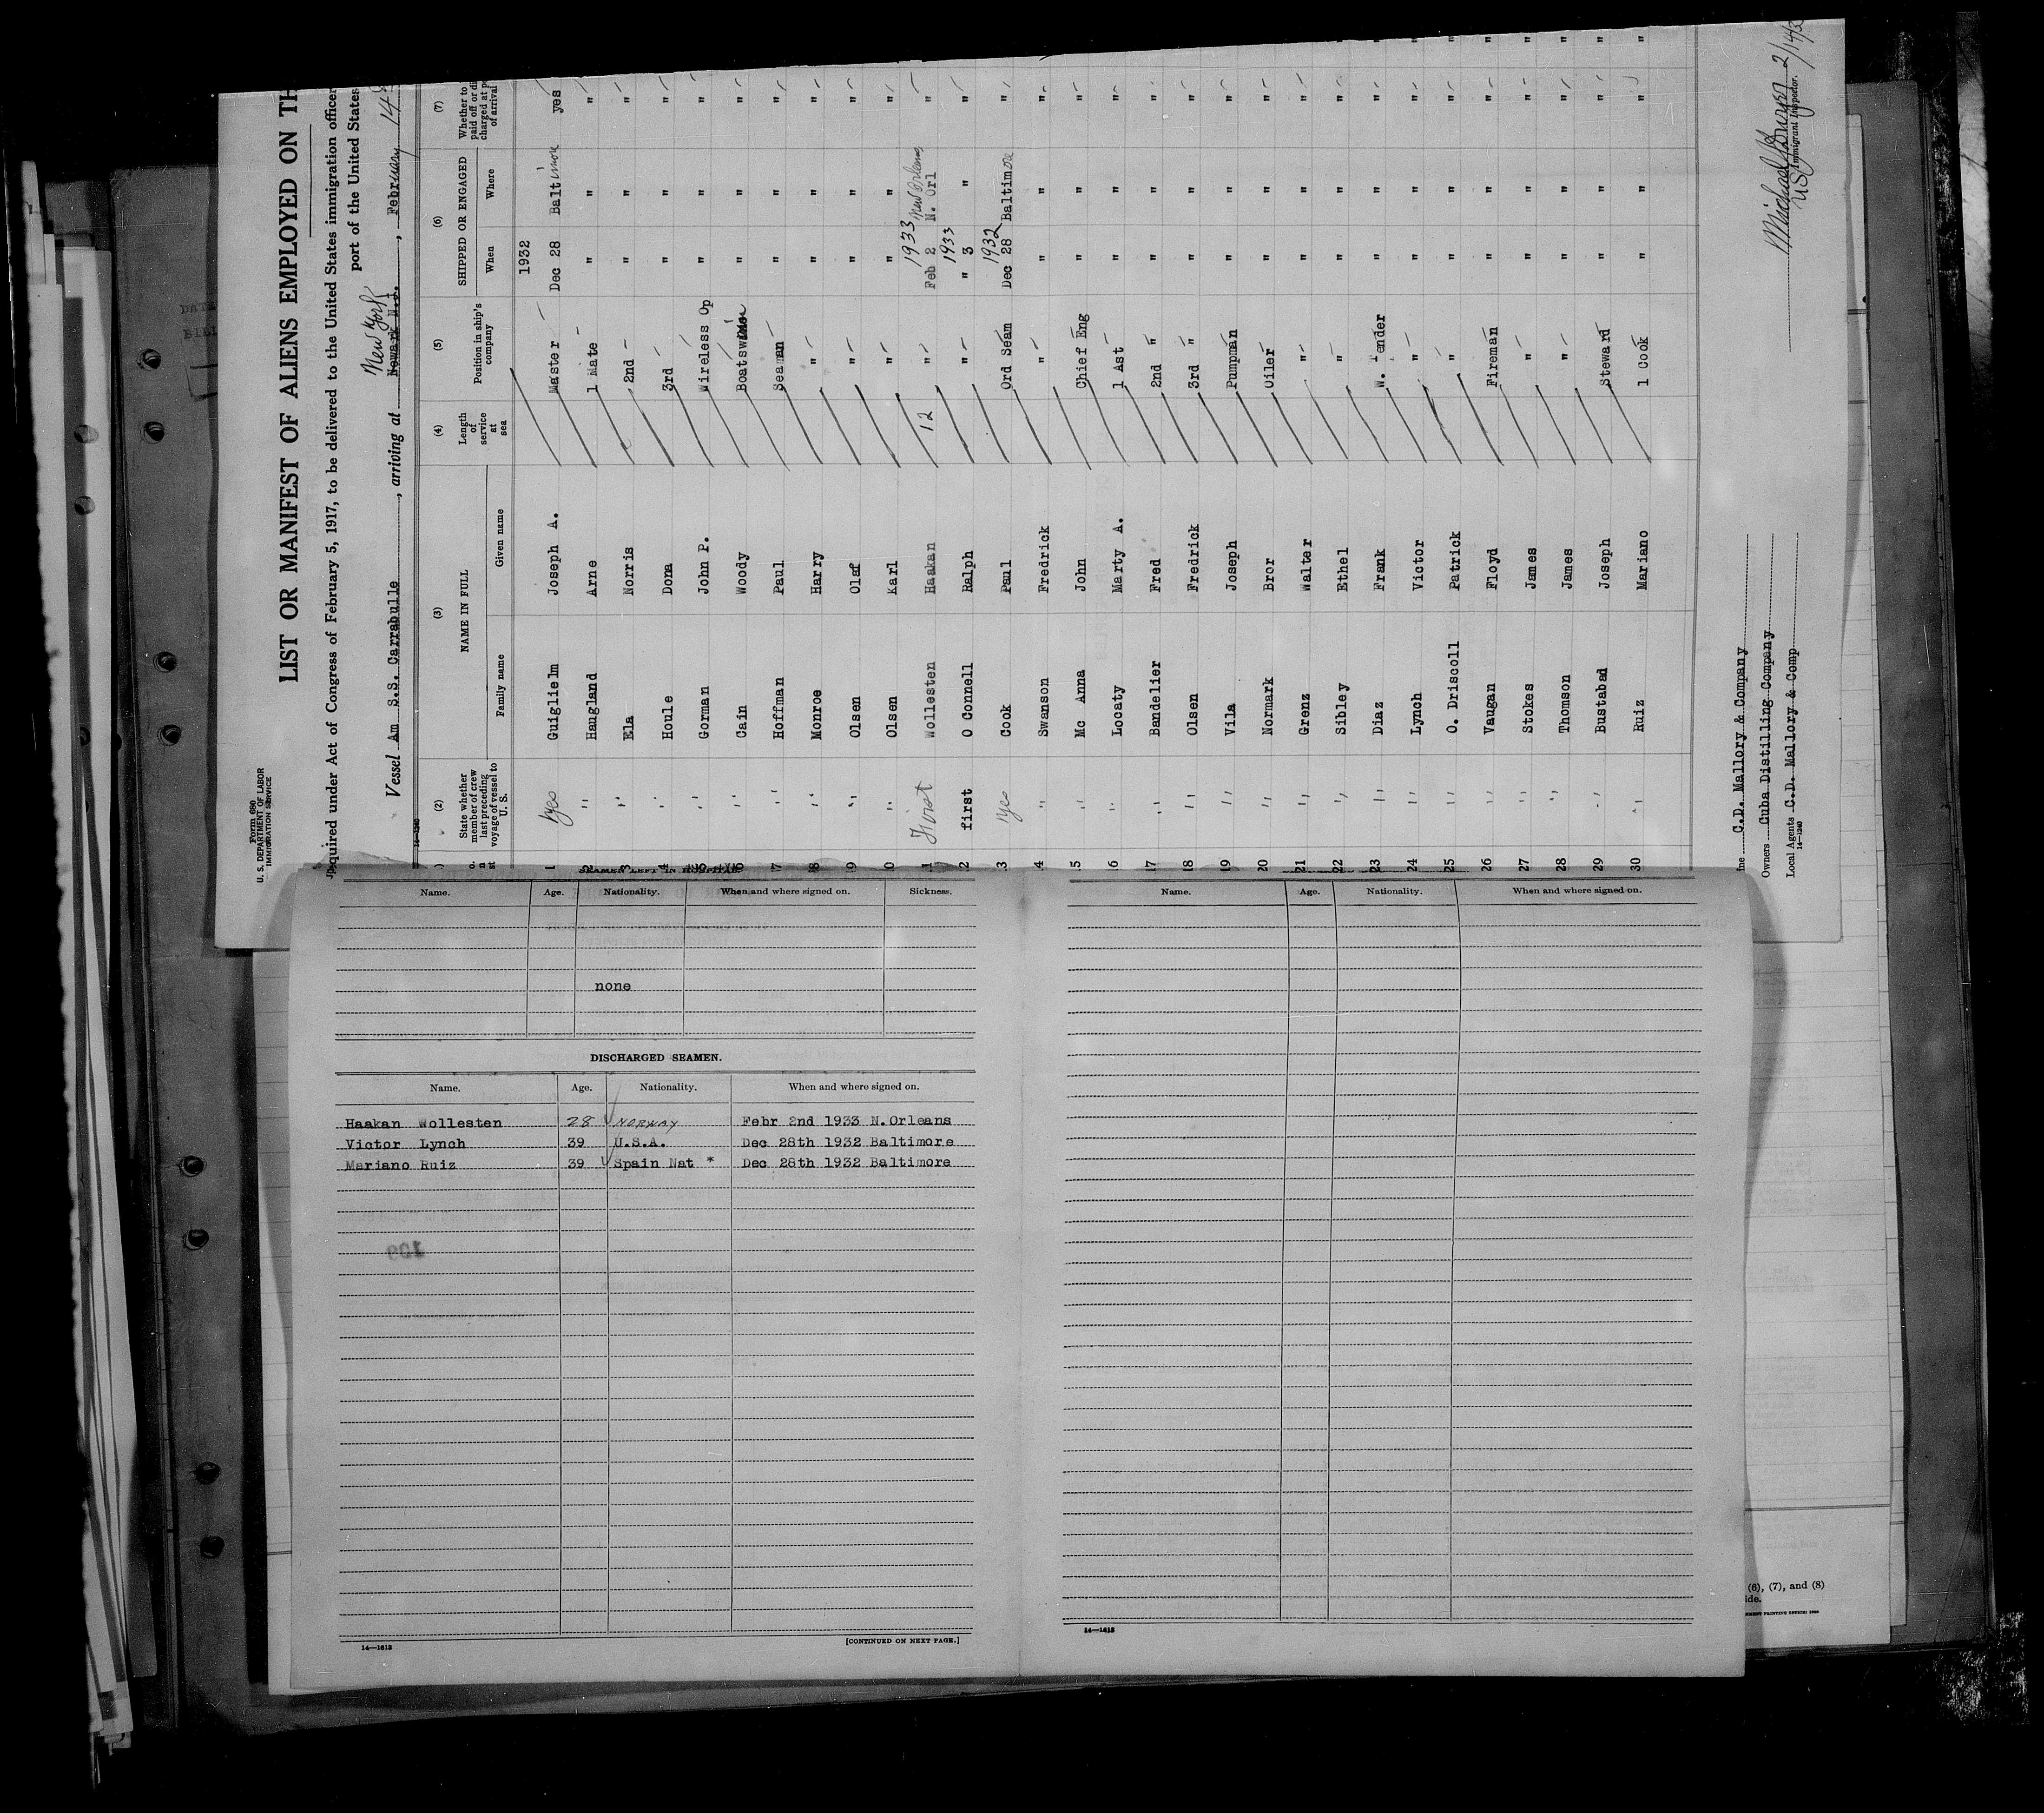 Form 680
U. S. DEPARTMENT OF LABOR
IMMIGRATION SERVICE
LIST OR MANIFEST OF ALIENS EMPLOYED ON TH
Required under Act of Congress of February 5, 1917, to be delivered to the United States immigration officer
port of the United States
New York
Vessel Am S.S. Carrabulle, arriving at Newark N.J., February 14
14—1240
(2) (3) (4) (5) (6) (7)
State whether member of crew last preceding voyage of vessel to U. S. NAME IN FULL Length of service at sea Position in ship's company SHIPPED OR ENGAGED Whether to paid off or di charged at p of arrival
Family name Given name When Where
1932
1 yes Guiglielm Joseph A. Master Dec 28 Baltimore yes
2 " Haugland Arne 1 Mate " " "
3 " Ela Norris 2nd " " "
4 " Houle Dona 3rd " " "
5 " Gorman John P. Wireless Op " " "
6 " Cain Woody Boatswain " " "
7 " Hoffman Paul Seaman " " "
8 " Monroe Harry " " " "
9 " Olsen Olaf " " " "
0 " Olsen Karl " " " "
1933 New Orleans
11 First Wollesten Haakan 12 " Feb 2 N. Orl "
1933
12 first O Connell Ralph " " 3 " "
1932
13 yes Cook Paul Ord Seam Dec 28 Baltimore "
14 " Swanson Fredrick " " " "
15 " Mc Anna John Chief Eng " " "
16 " Locaty Marty A. 1 Ast " " "
17 " Bandelier Fred 2nd " " " "
18 " Olsen Fredrick 3rd " " " "
19 " Vila Joseph Pumpman " " "
20 " Normark Bror Oiler " " "
21 " Grenz Walter " " " "
22 " Sibley Ethel " " " "
23 " Diaz Frank W. Tender " " "
24 " Lynch Victor " " " "
25 " O. Driscoll Patrick " " " "
26 " Vaugan Floyd Fireman " " "
27 " Stokes James " " " "
28 " Thomson James " " " "
29 " Bustabad Joseph Steward " " "
30 " Ruiz Mariano 1 Cook " " "
ine C.D. Mallory & Company
Owners Cuba Distilling Company
Local Agents C.D. Mallory & Comp
14—1240
Immigrant Inspector.
SEAMEN LEFT IN HOSPITAL
Name. Age. Nationality. When and where signed on. Sickness.
none
DISCHARGED SEAMEN.
Name. Age. Nationality. When and where signed on.
Haakan Wollesten 28 NORWAY Febr 2nd 1933 N.Orleans
Victor Lynch 39 U.S.A. Dec 28th 1932 Baltimore
Mariano Ruiz 39 Spain Nat * Dec 28th 1932 Baltimore
109
14—1613
[CONTINUED ON NEXT PAGE.]
Name. Age. Nationality. When and where signed on.
14—1613
(6), (7), and (8)
ide.